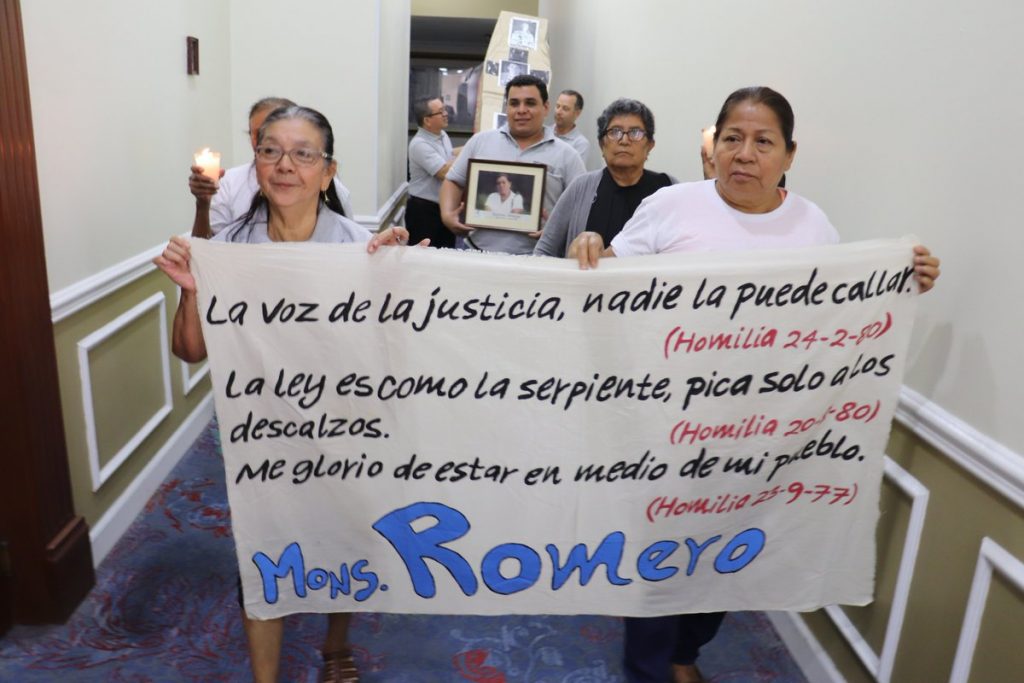 La voz de la justicia, nadie la puede callar.
(Homilia 24-2-80)
La ley es como la serpiente, pica solo a los
descalzos.
(Homilia 80)
Me glorio de estar en medio de mi pueblo.
(Homilia 25-9-77)
Mons. Romero